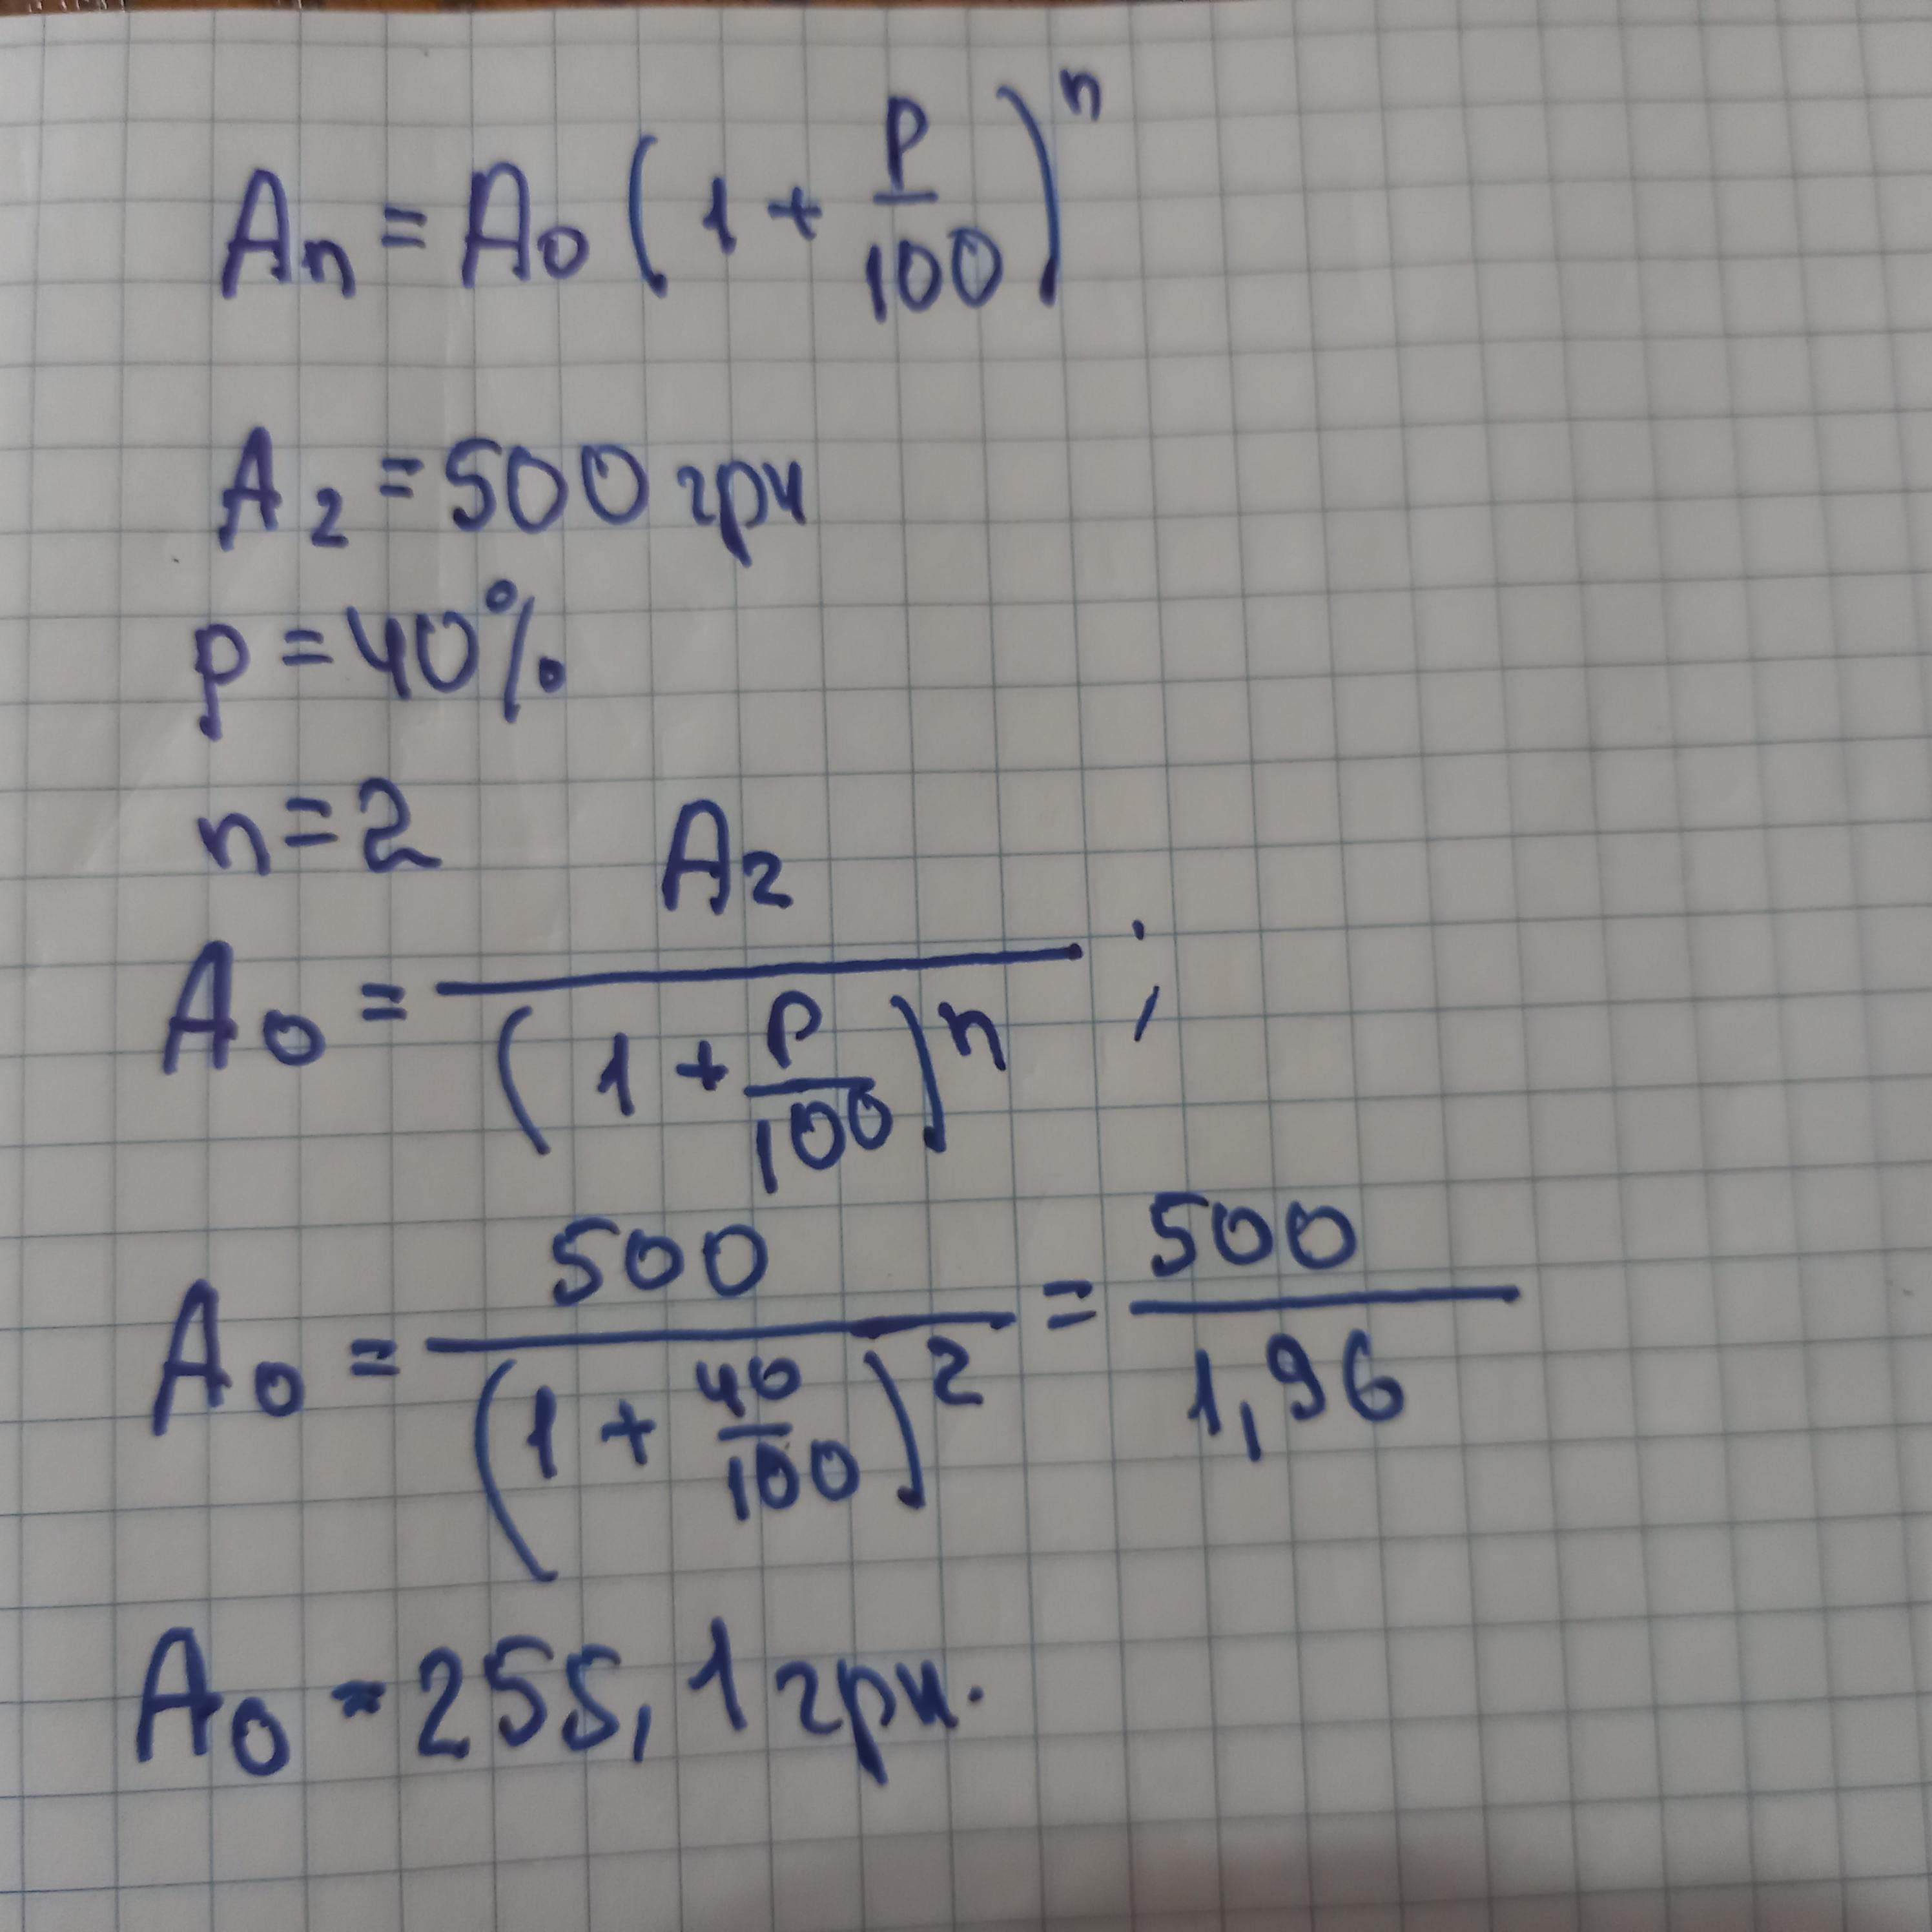 Aₙ = A₀ (1 + p/100)ⁿ
A₂ = 500 грн
p = 40%
n = 2
A₀ = A₂ / (1 + p/100)ⁿ ;
A₀ = 500 / (1 + 40/100)² = 500 / 1,96
A₀ = 255,1 грн.